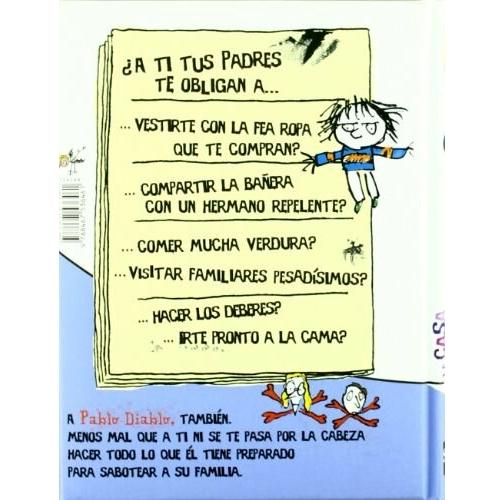 ¿A TI TUS PADRES
TE OBLIGAN A...
... VESTIRTE CON LA FEA ROPA
QUE TE COMPRAN?
... COMPARTIR LA BAÑERA
CON UN HERMANO REPELENTE?
... COMER MUCHA VERDURA?
... VISITAR FAMILIARES PESADÍSIMOS?
... HACER LOS DEBERES?
... IRTE PRONTO A LA CAMA?
A Pablo Diablo, TAMBIÉN.
MENOS MAL QUE A TI NI SE TE PASA POR LA CABEZA
HACER TODO LO QUE ÉL TIENE PREPARADO
PARA SABOTEAR A SU FAMILIA.
CASA